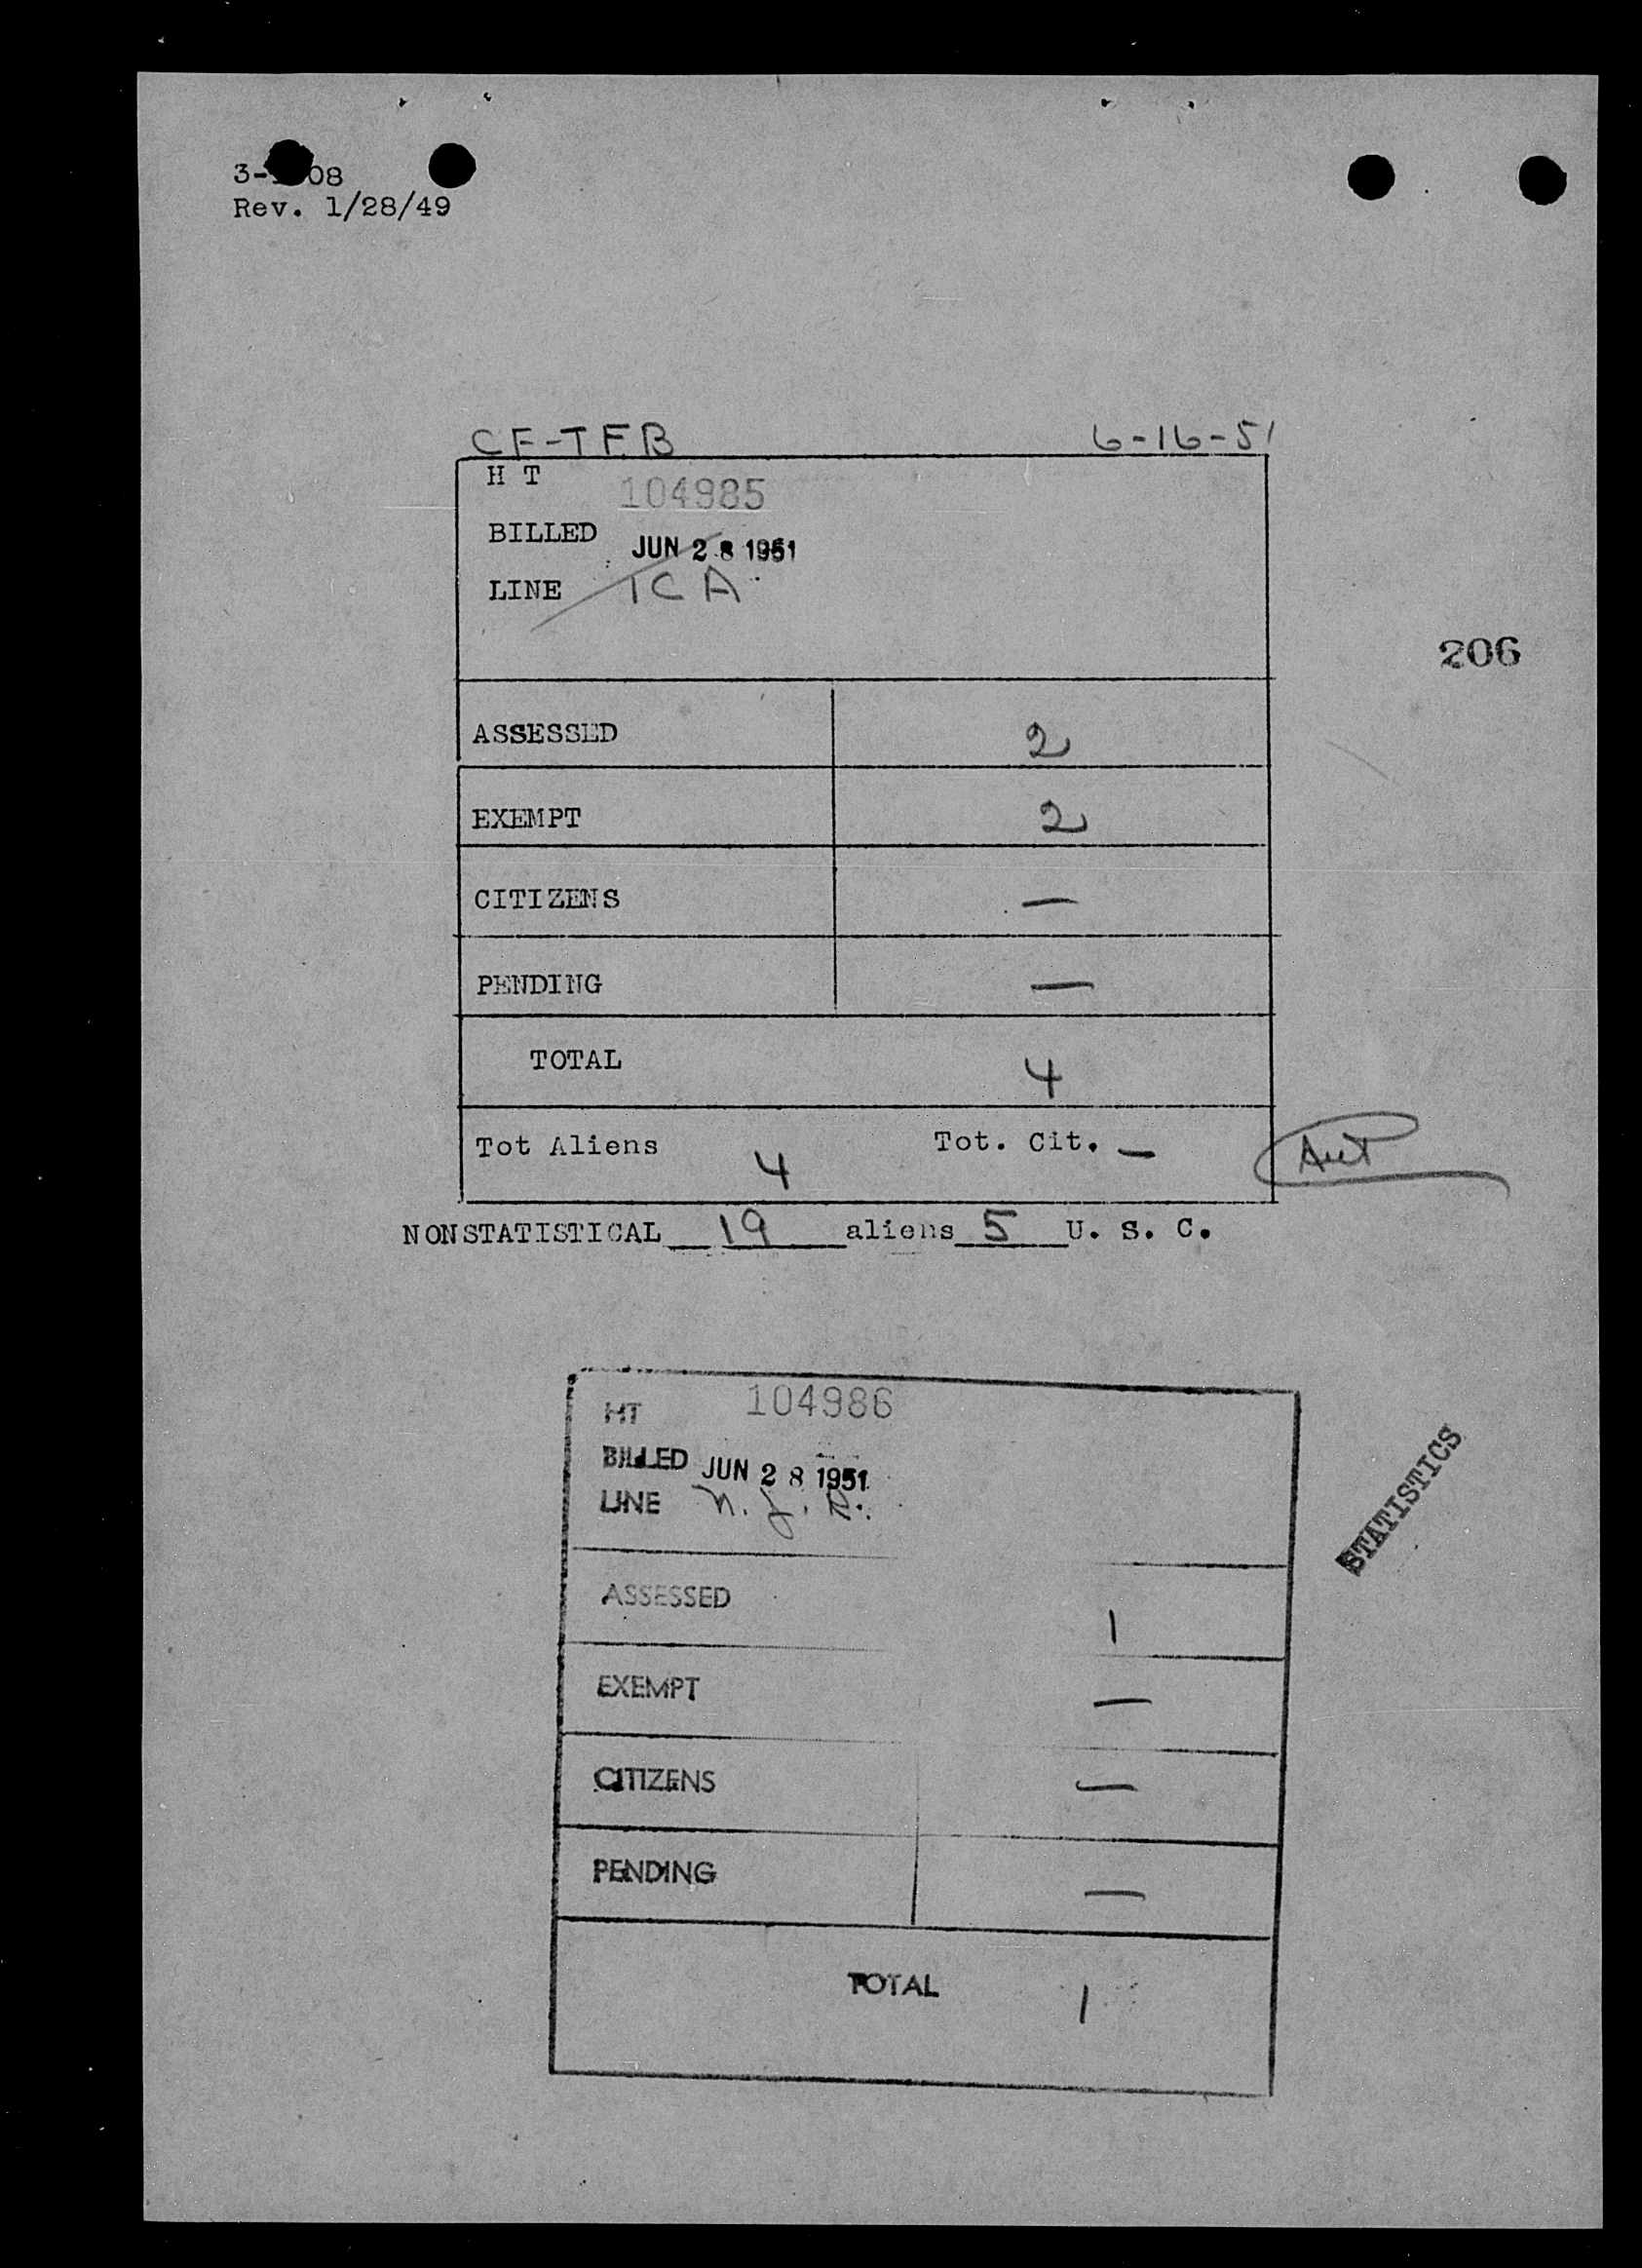 3- 08
Rev. 1/28/49
CF-TFB 6-16-51
H T 104985
BILLED JUN 28 1951
LINE TCA
206
ASSESSED 2
EXEMPT 2
CITIZENS —
PENDING —
TOTAL 4
Tot Aliens 4 Tot. Cit. —
NONSTATISTICAL 19 aliens 5 U. S. C.
HT 104986
BILLED JUN 28 1951
LINE
STATISTICS
ASSESSED 1
EXEMPT —
CITIZENS —
PENDING —
TOTAL 1